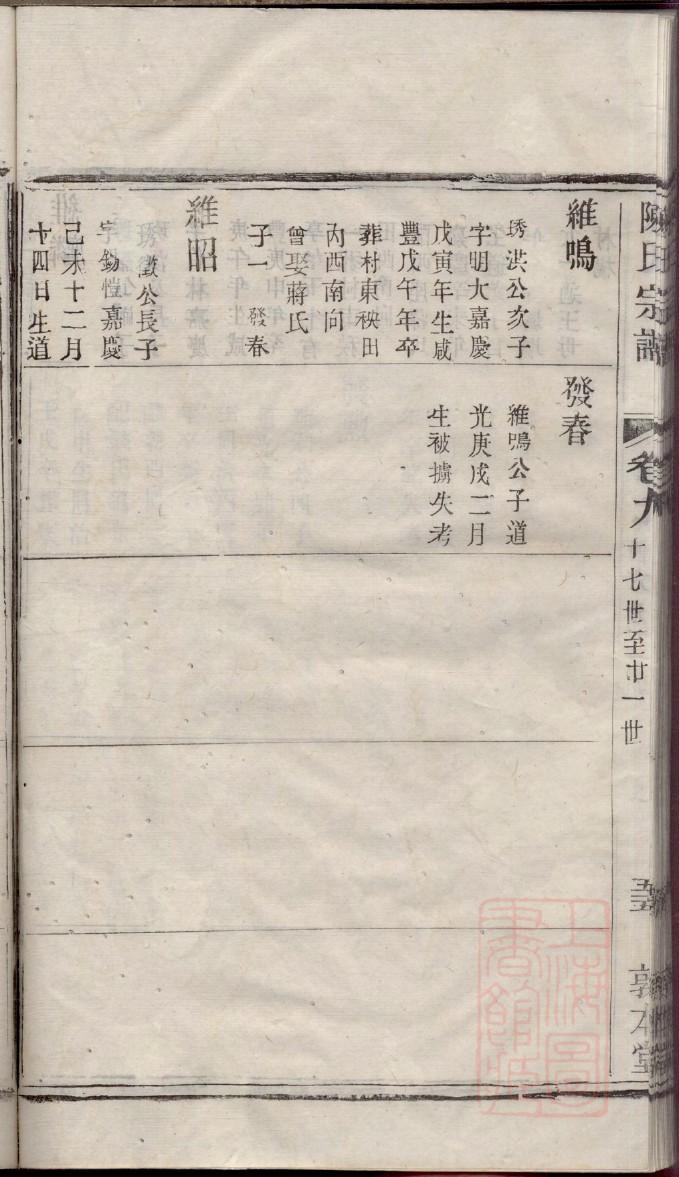 陳氏宗譜
卷九
十七世至廿一世
敦本堂
維鳴
琇洪公次子
字明大嘉慶
戊寅年生咸
豐戊午年卒
葬村東秧田
內酉南向
曾娶蔣氏
子一發春
維昭
琇徵公長子
字鋤愷嘉慶
己未十二月
十四日生道
發春
維鳴公子道
光庚戌二月
生被擄失考
上海圖
書館藏